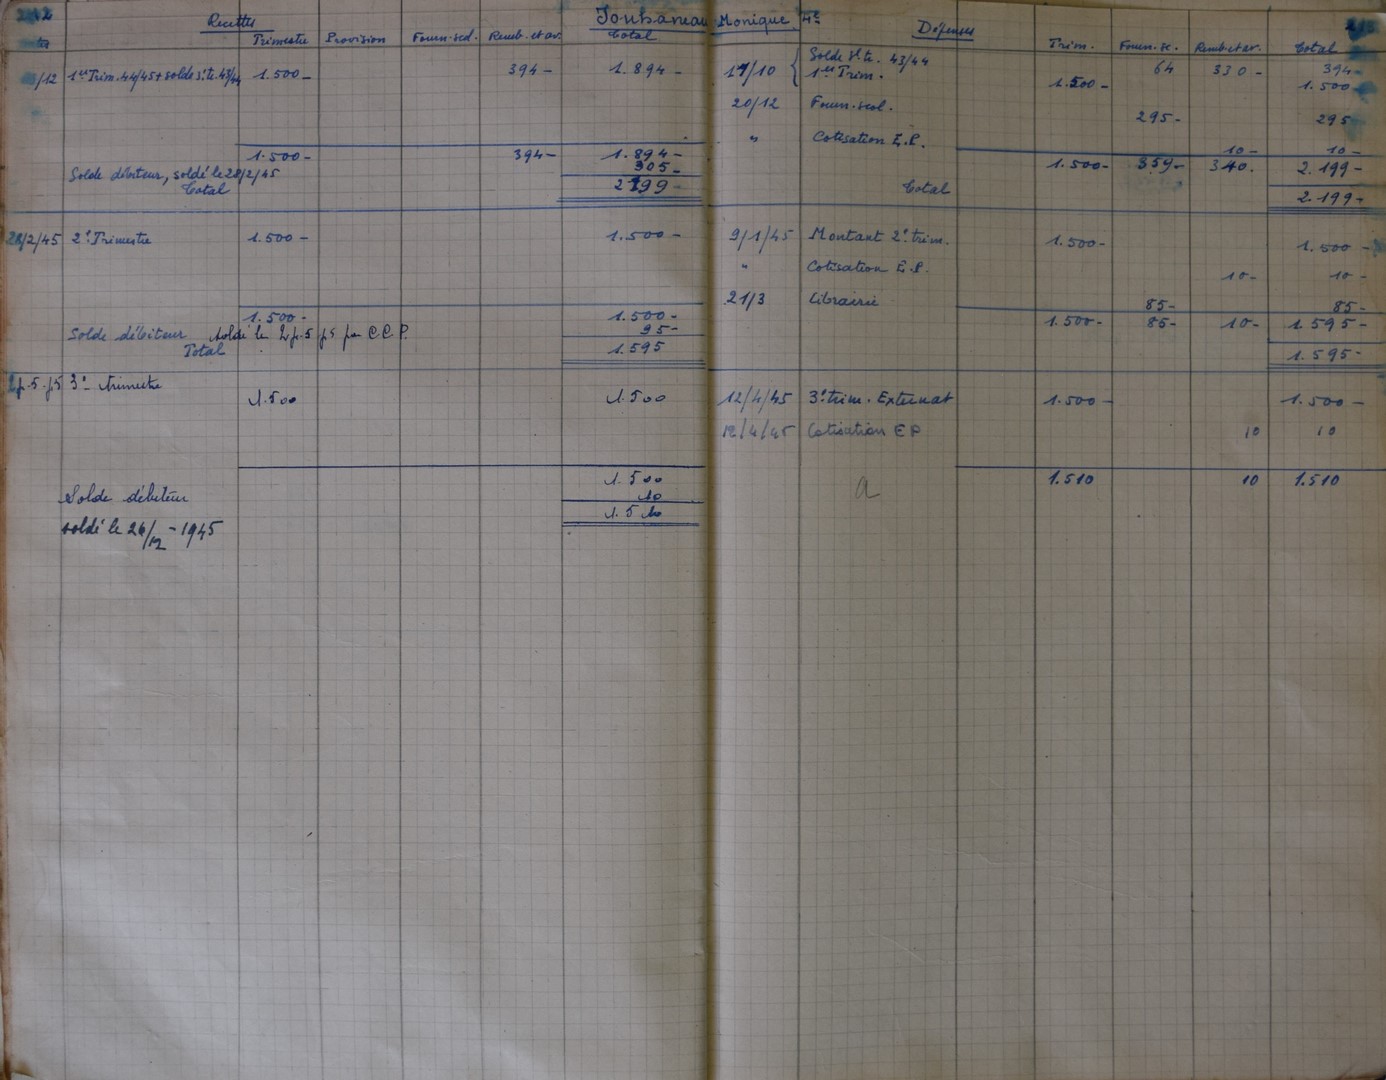 212
Recettes
Trimestre Provision Fourn. scol. Remb. et av. Total
/12 1er Trim. 44/45 + solde s.te. 43/44 1.500 - 394 - 1.894 -
1.500 - 394 - 1.894 -
Solde débiteur, soldé le 28/2/45 305 -
Total 2199 -
28/2/45 2e Trimestre 1.500 - 1.500 -
1.500 - 1.500 -
Solde débiteur soldé le par C.C.P. 95 -
Total 1.595
3e trimestre
1.500 1.500
1.500
Solde débiteur 10
soldé le 26/12 - 1945 1.510
Monique 4e
Dépenses
Trim. Fourn. sc. Remb et av. Total
17/10 Solde st. te. 43/44 64 330 - 394 -
1er Trim. 1.500 - 1.500
20/12 Fourn. scol. 295 - 295
" Cotisation E.P. 10 - 10 -
1.500 - 359 - 340. 2.199 -
Total 2.199 -
9/1/45 Montant 2e trim. 1.500 - 1.500 -
" Cotisation E.P. 10 - 10 -
21/3 Librairie 85 - 85 -
1.500 - 85 - 10 - 1.595 -
1.595 -
12/4/45 3e trim. Externat 1.500 - 1.500 -
12/4/45 Cotisation EP 10 10
a 1.510 10 1.510